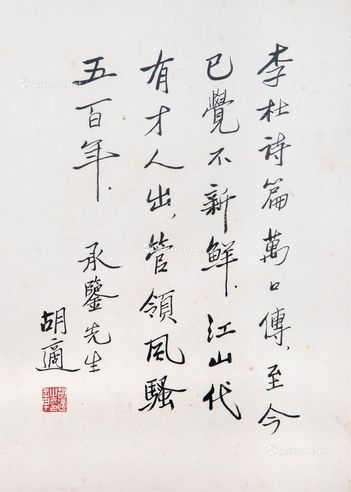 李杜詩篇萬口傳，至今
已覺不新鮮．江山代
有才人出，管領風騷
五百年．
承鑒先生
胡適